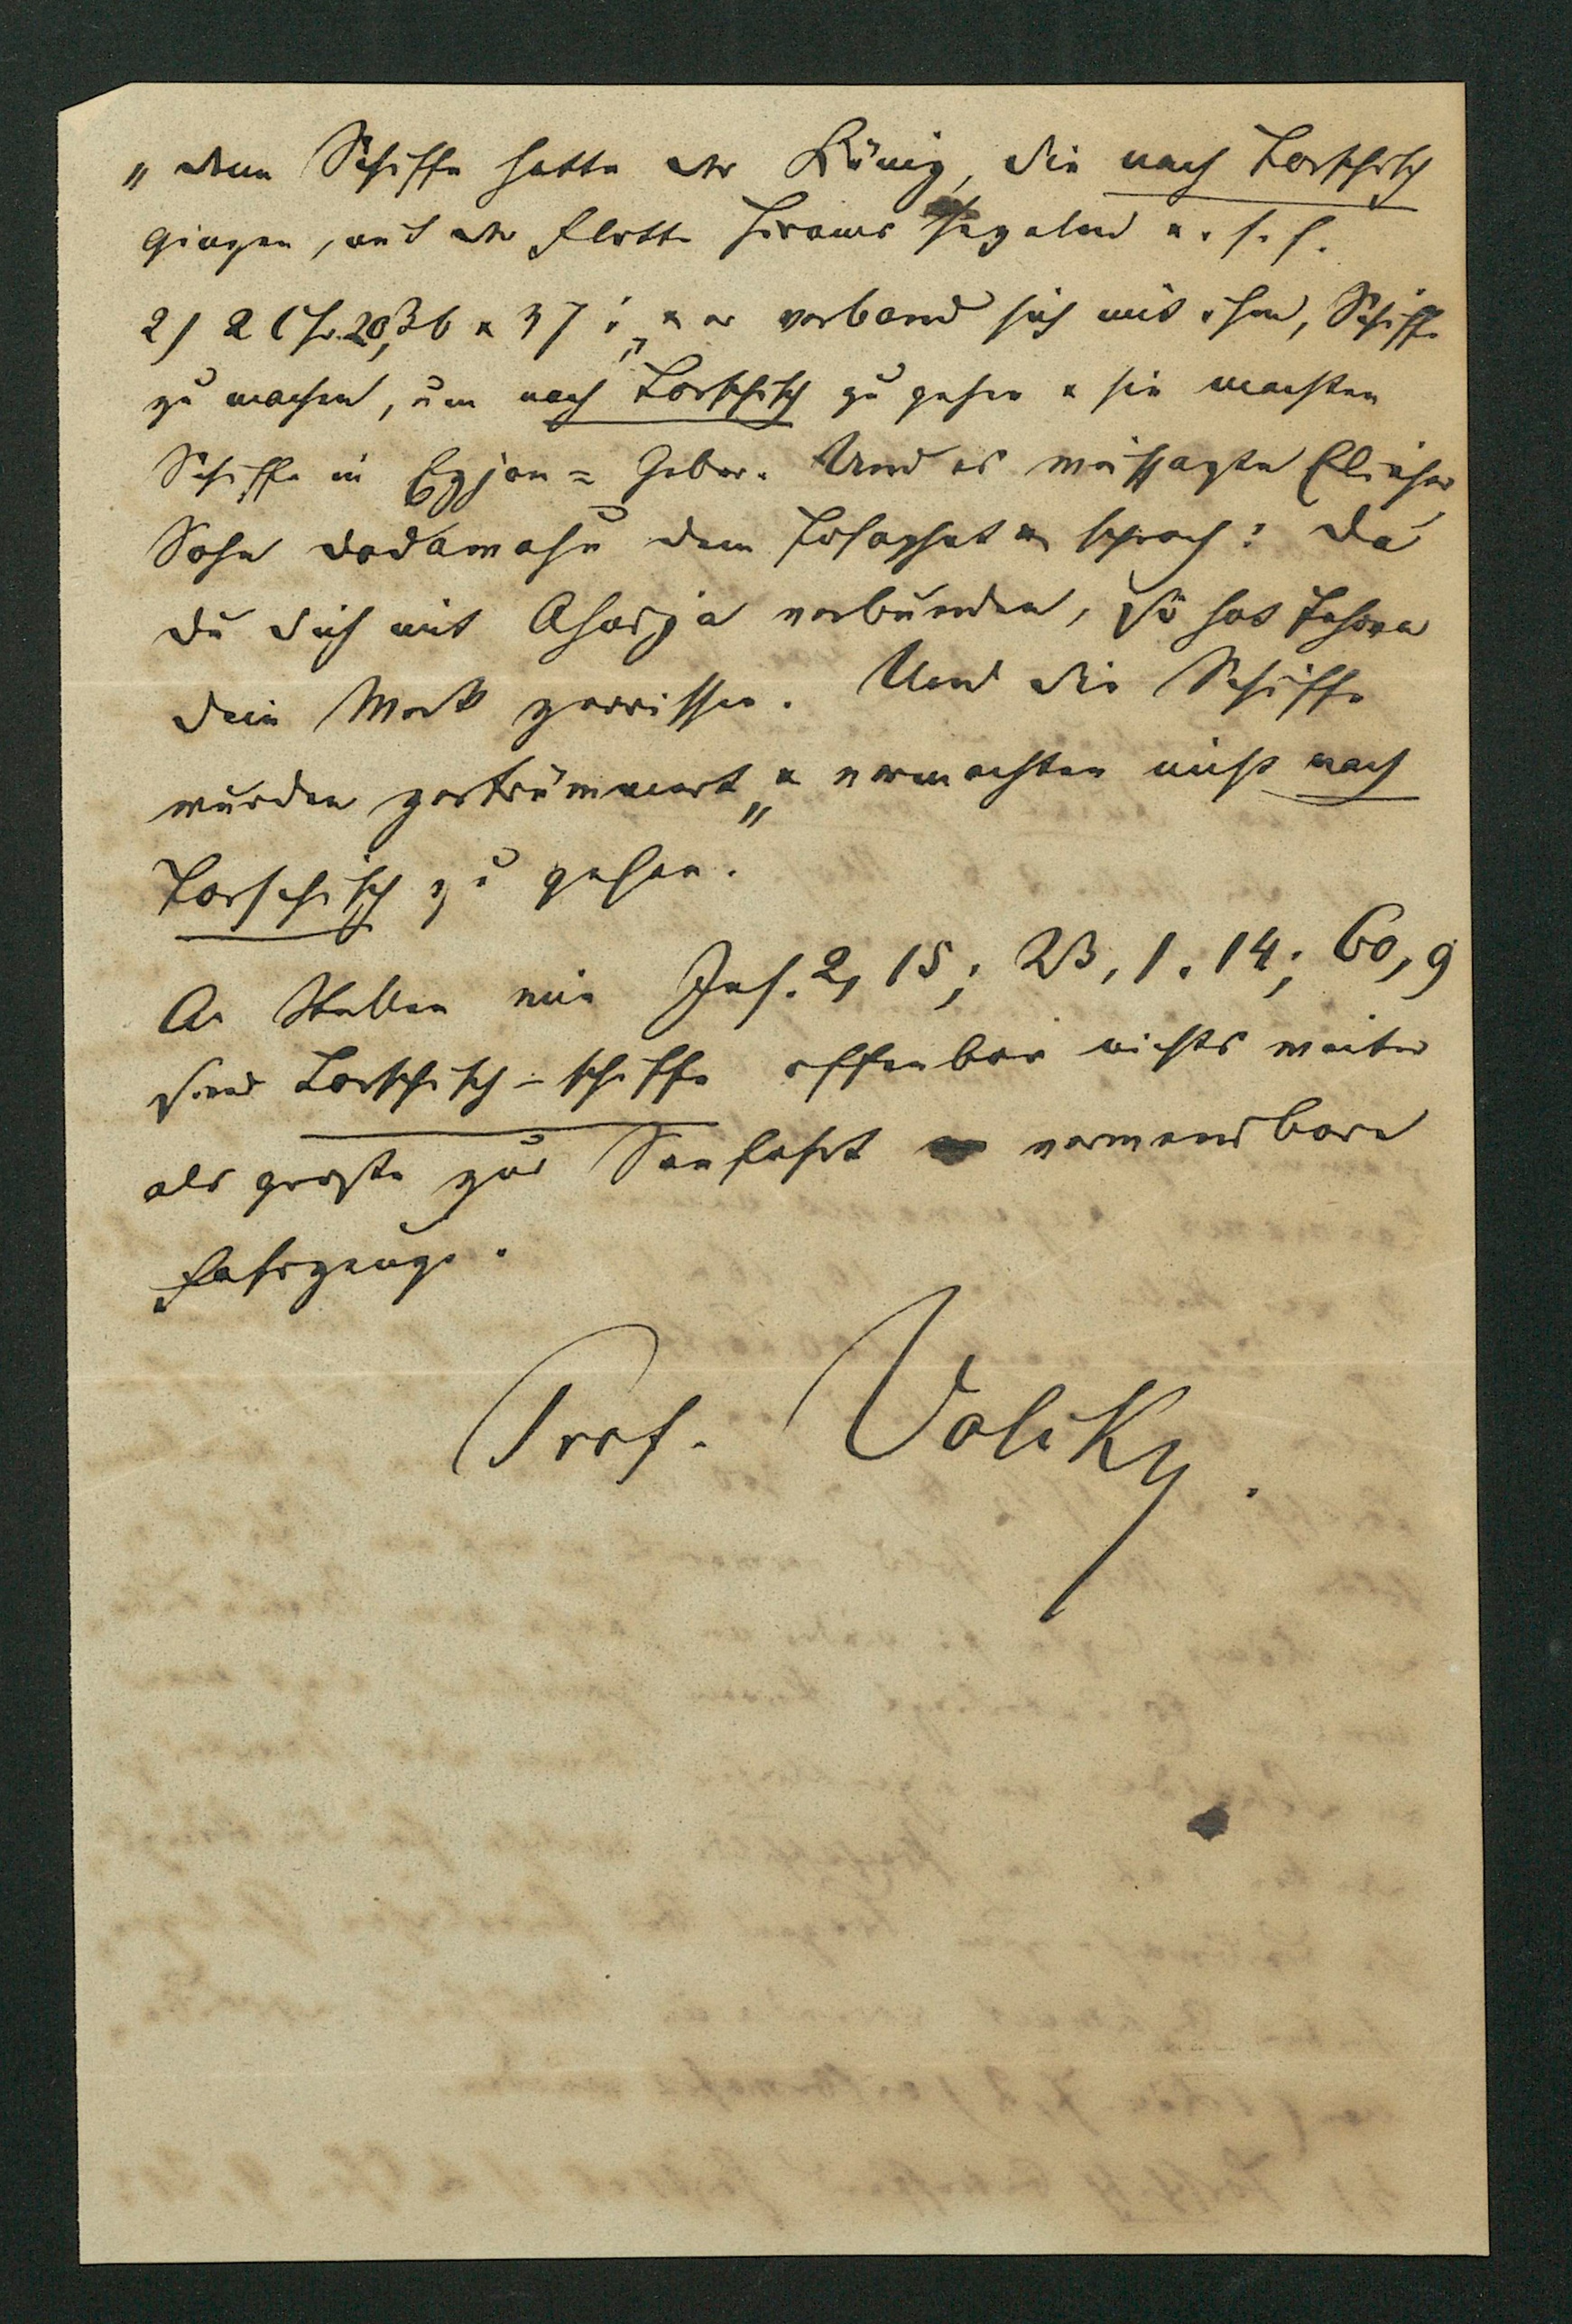 „ denn Schiffe hatte der König, die nach Tarschisch
gingen, mit der Flotte Hirams segelnd u. s. f.
2) 2 Chr. 20, 36 u 37: „u er verband sich mit ihm, Schiffe
zu machen, um nach Tarschisch zu gehen u sie machten
Schiffe in Ezjon = Geber. Und es weissagte Elieser
Sohn Dodawahu dem Josaphat u sprach: Da
du dich mit Ahasja verbunden, so hat Jehova
dein Werk zerrissen. Und die Schiffe
wurden zertrümmert „u vermochten nicht nach
Tarschisch zu gehen.
An Stellen wie Jes. 2, 15; 23, 1. 14; 60, 9
sind Tarschisch-schiffe offenbar nichts weiter
als grosse zur Seefahrt verwendbare
Fahrzeuge.
Prof. Voliky.